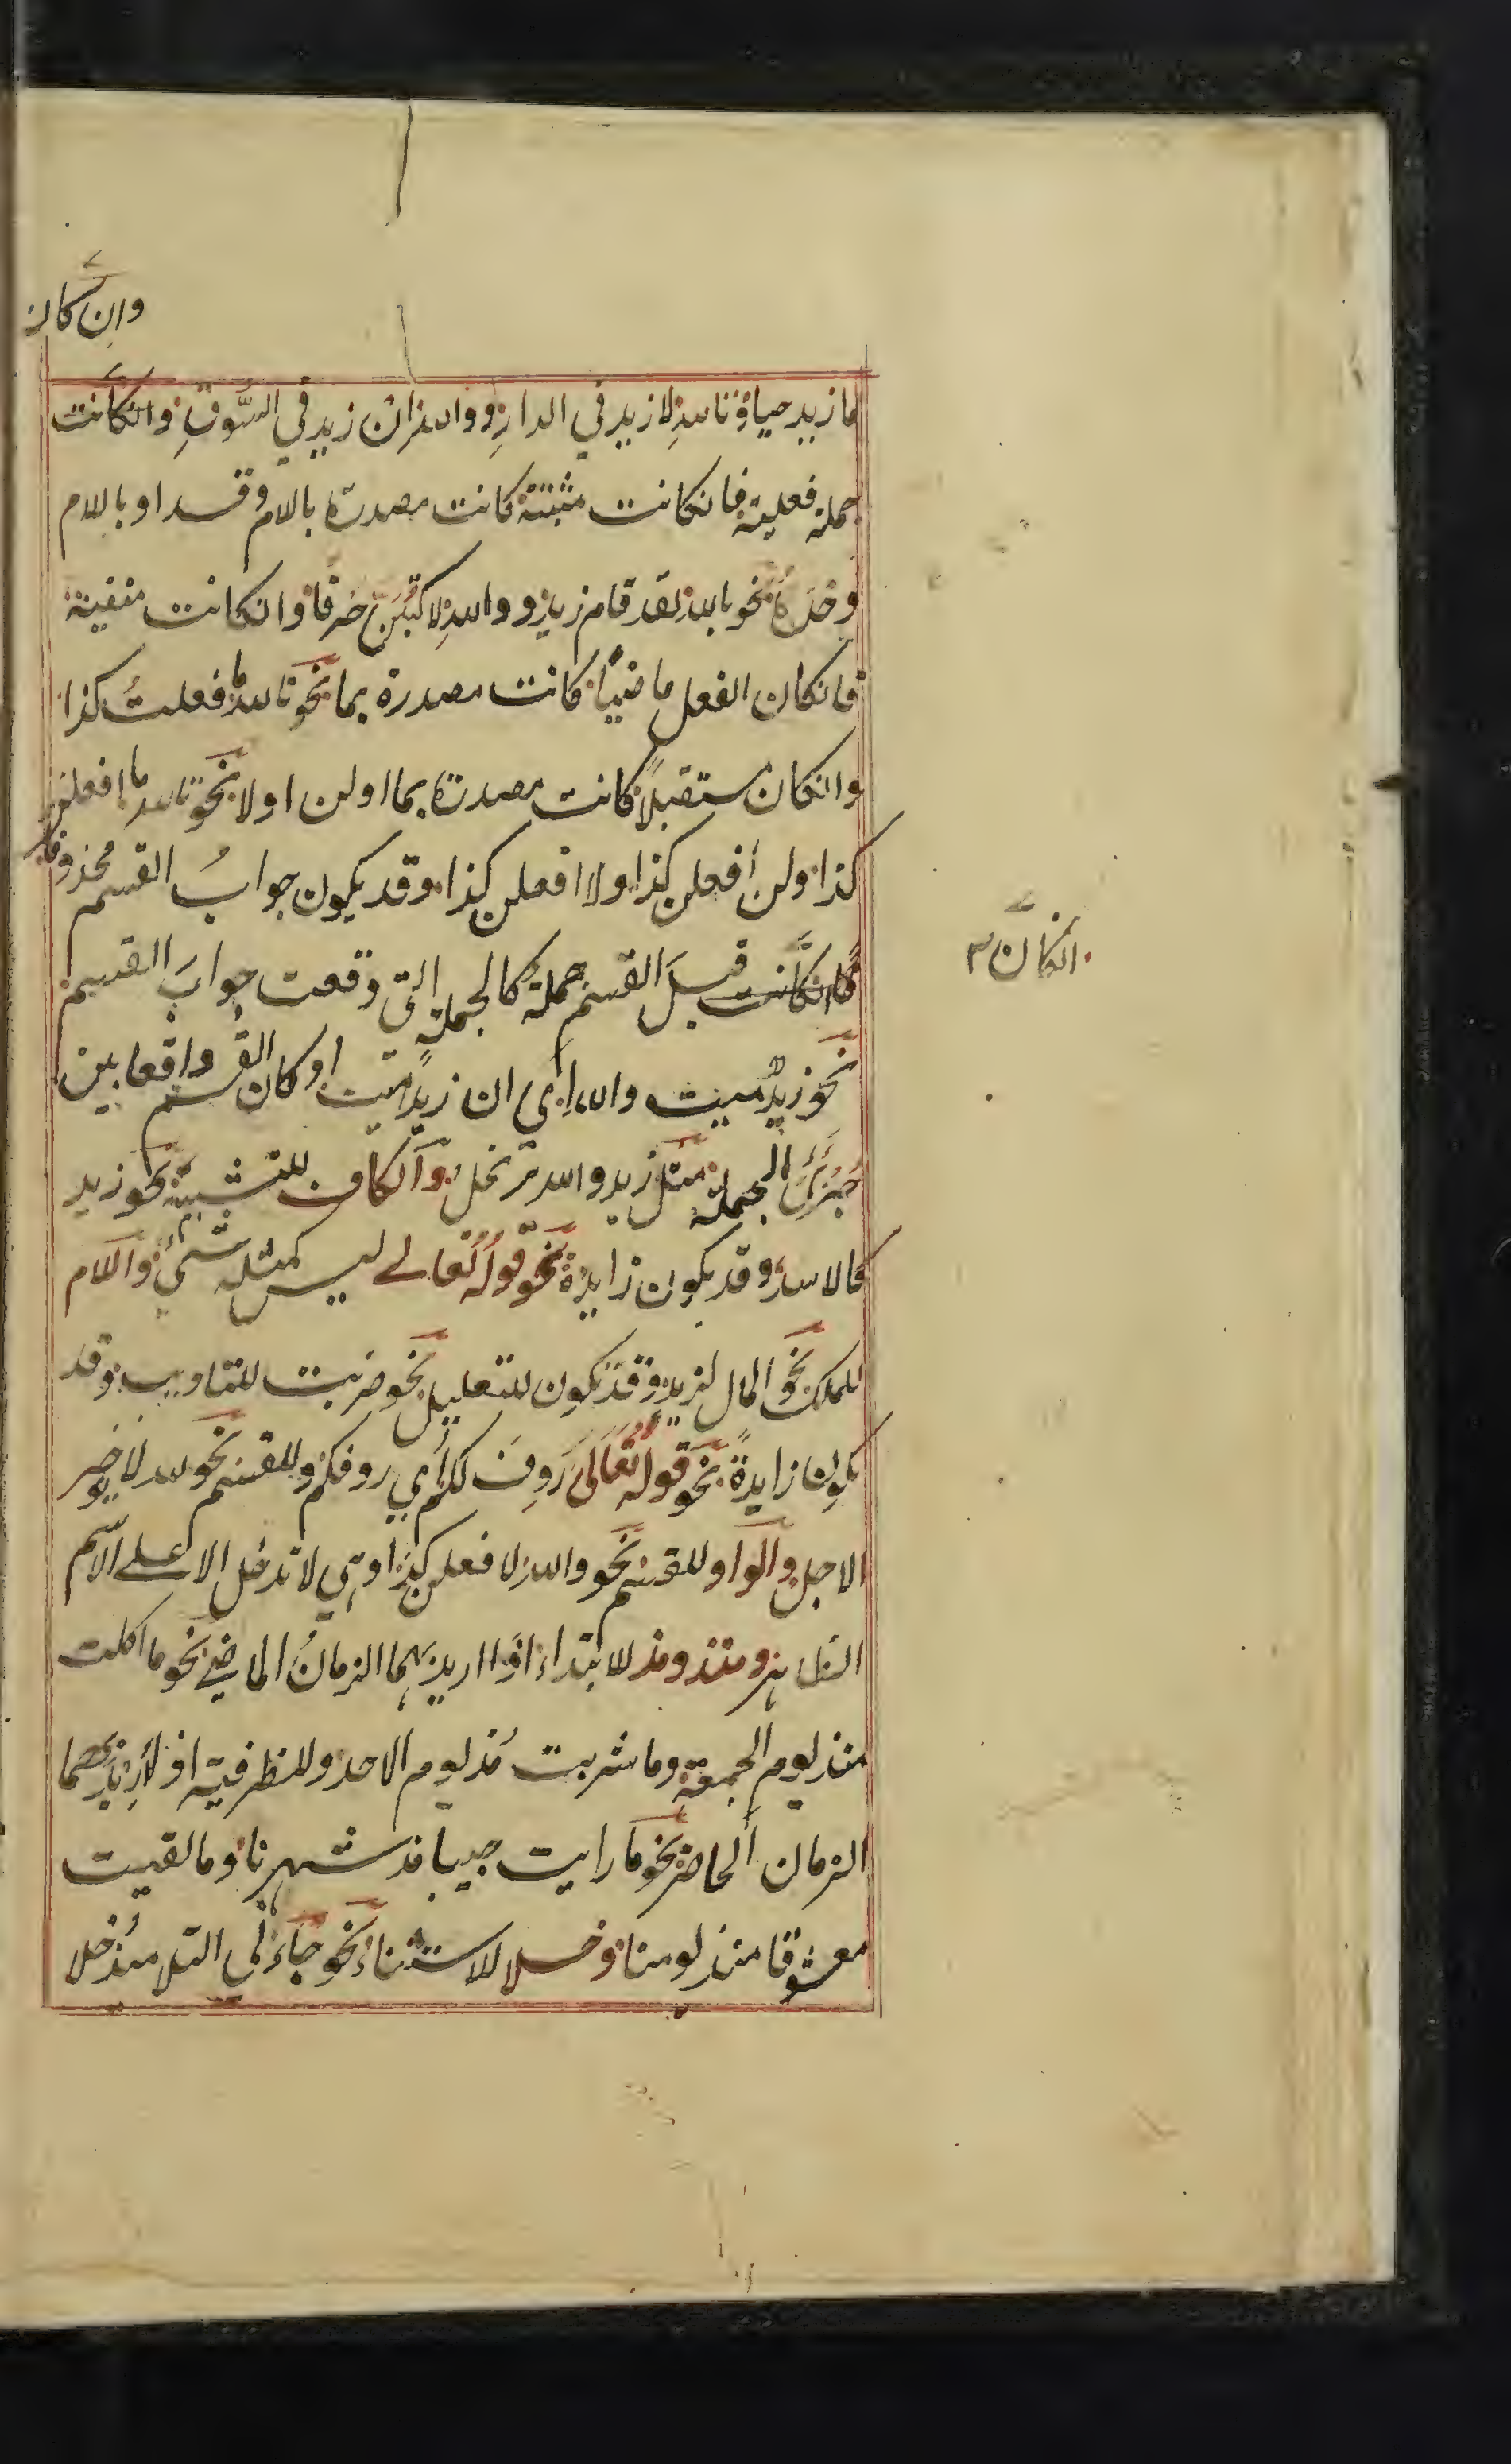 وان كان
ما زيد حياؤ تالله لا زيد في الدار ووالله ان زيد في السُّوقِ وانكانت
جملة فعلية فانكانت مثبتة كانت مصدرة بالام وقد او باللام
وحدهُ نحو بالله لقد قام زيد ووالله لاكتبنّ حرفا وانكانت منفية
فانكان الفعل ماضيًا كانت مصدرة بما نحو تالله ما فعلتُ كذا
وانكان مستقبلًا كانت مصدرة بما اولن اولا نحو تالله ما افعلن
كذا ولن أفعلن كذا ولا افعلن كذا وقد يكون جوابُ القسم محذوفا
انكان
انكانت قبلَ القسم جملة كالجملة التي وقعت جوابَ القسم
نحو زيدٌ ميت والله اي ان زيدًا ميت او كان القسم واقعا بين
جُزئَيِ الجملة مثل زيد والله نخل والكاف للتشبيه نحو زيد
كالاسد وقد يكون زايدة نحو قولُه تعالے ليس كمثله شيٌ واللام
للملك نحو المال لزيد وقد تكون للتعليل نحو ضربت للتاديب وقد
يكون زايدةً نحو قوله تعَالَى رَدِفَ لكم أي ردفكم وللقسم نحو لله لا يوخر
الاجل والواو للقسم نحو والله لا فعلن كذا وهي لا تدخل الا علے الاسم
الظاهر ومنذ ومذ للابتداء اذا اريد بهما الزمانُ الماضي نحو ما اكلت
منذ يوم الجمعة وما شربت مُذ يوم الاحد وللظرفية اذا أُرِيدَ بهما
الزمان الحاضر نحو ما رايت حبيبا مذ شهرنا وما لقيت
معشوقا منذ يومنا وخلا للاستثناء نحو جاءَني التلاميذُ خلا